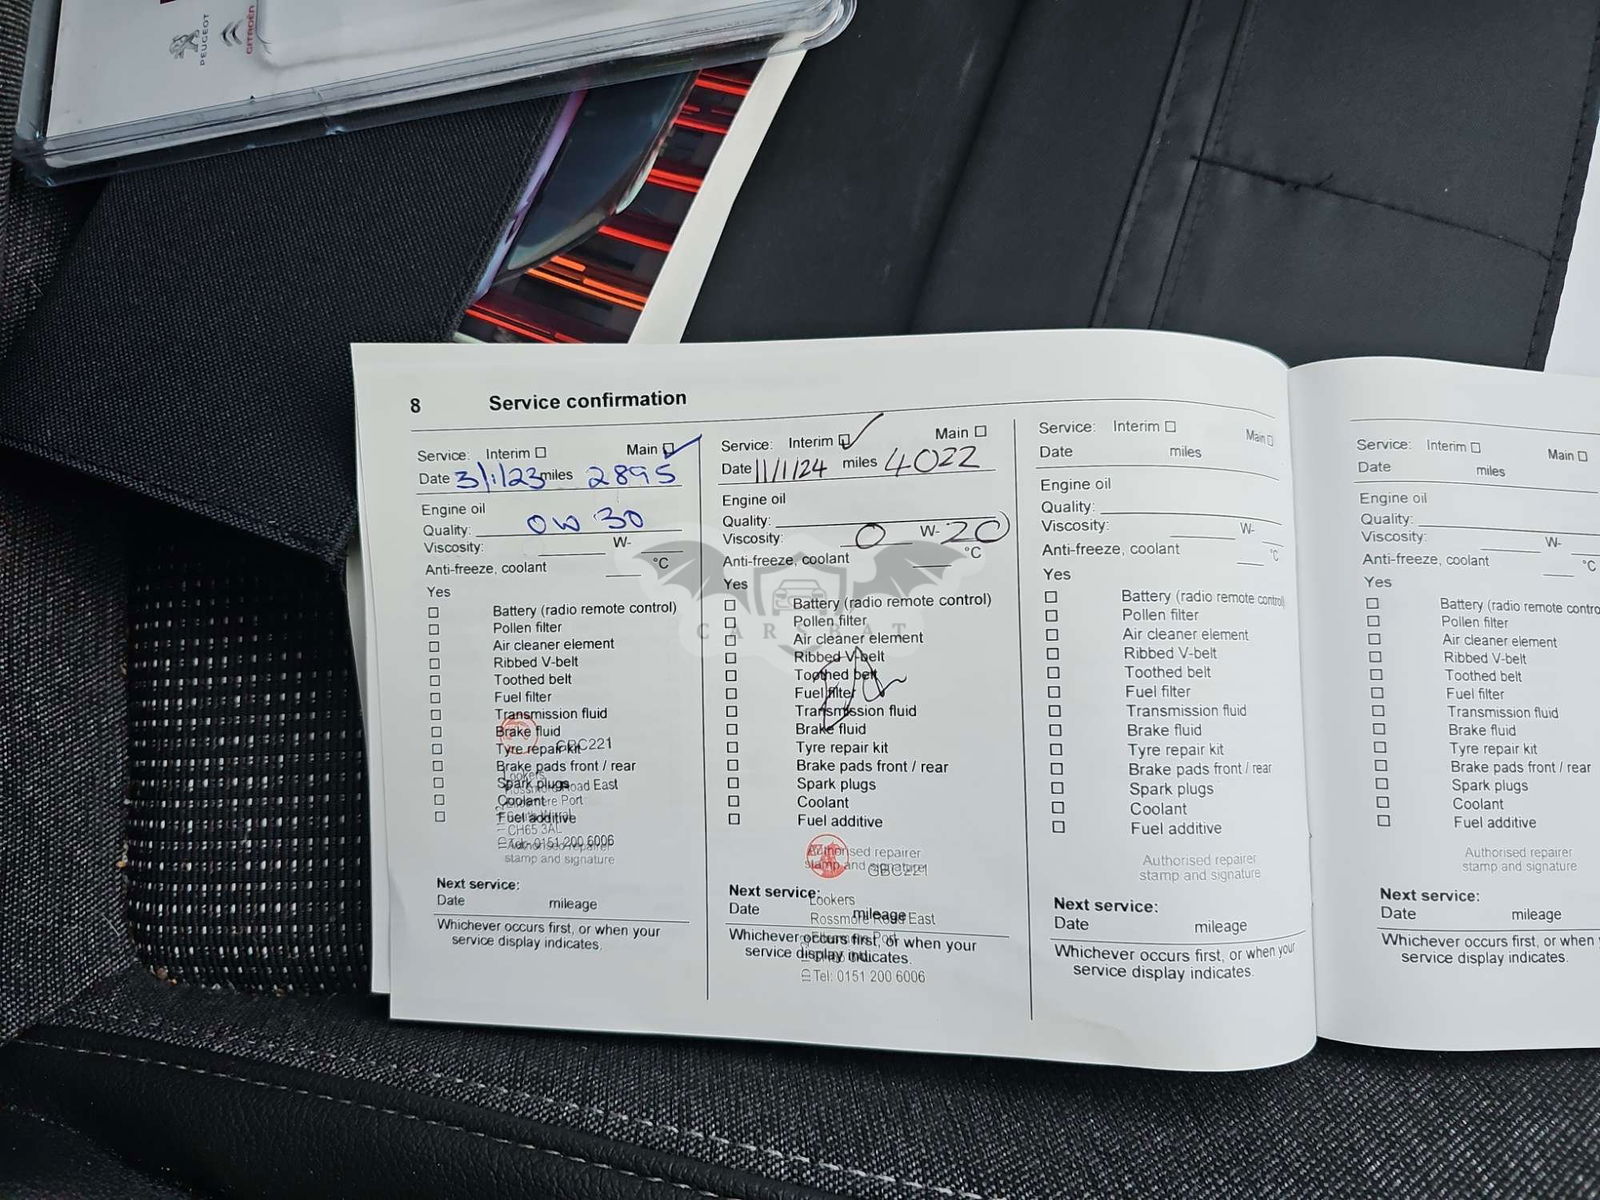 PEUGEOT
CITROËN
8 Service confirmation
Service: Interim ☐ Main ☑
Date 3/1/23 miles 2895
Engine oil
Quality: 0W 30
Viscosity: W-
Anti-freeze, coolant °C
Yes
☐ Battery (radio remote control)
☐ Pollen filter
☐ Air cleaner element
☐ Ribbed V-belt
☐ Toothed belt
☐ Fuel filter
☐ Transmission fluid
☐ Brake fluid
☐ Tyre repair kit
GBC221
☐ Brake pads front / rear
Lookers
☐ Spark plugs
Rossmore Road East
☐ Coolant
Port
☐ Fuel additive
CH65 3AL
Tel: 0151 200 6006
Authorised repairer
stamp and signature
Next service:
Date mileage
Whichever occurs first, or when your
service display indicates.
Service: Interim ☑ Main ☐
Date 11/1/24 miles 4022
Engine oil
Quality:
Viscosity: 0 W- 20
Anti-freeze, coolant °C
Yes
☐ Battery (radio remote control)
☐ Pollen filter
CARSBAT
☐ Air cleaner element
☐ Ribbed V-belt
☐ Toothed belt
☐ Fuel filter
☐ Transmission fluid
☐ Brake fluid
☐ Tyre repair kit
☐ Brake pads front / rear
☐ Spark plugs
☐ Coolant
☐ Fuel additive
Authorised repairer
stamp and signature
GBC221
Next service:
Lookers
Date mileage
Rossmore Road East
Whichever occurs first, or when your
Port
service display indicates.
Tel: 0151 200 6006
Service: Interim ☐ Main ☐
Date miles
Engine oil
Quality:
Viscosity: W-
Anti-freeze, coolant °C
Yes
☐ Battery (radio remote control)
☐ Pollen filter
☐ Air cleaner element
☐ Ribbed V-belt
☐ Toothed belt
☐ Fuel filter
☐ Transmission fluid
☐ Brake fluid
☐ Tyre repair kit
☐ Brake pads front / rear
☐ Spark plugs
☐ Coolant
☐ Fuel additive
Authorised repairer
stamp and signature
Next service:
Date mileage
Whichever occurs first, or when your
service display indicates.
Service: Interim ☐ Main ☐
Date miles
Engine oil
Quality:
Viscosity: W-
Anti-freeze, coolant °C
Yes
☐ Battery (radio remote contro
☐ Pollen filter
☐ Air cleaner element
☐ Ribbed V-belt
☐ Toothed belt
☐ Fuel filter
☐ Transmission fluid
☐ Brake fluid
☐ Tyre repair kit
☐ Brake pads front / rear
☐ Spark plugs
☐ Coolant
☐ Fuel additive
Authorised repairer
stamp and signature
Next service:
Date mileage
Whichever occurs first, or when
service display indicates.